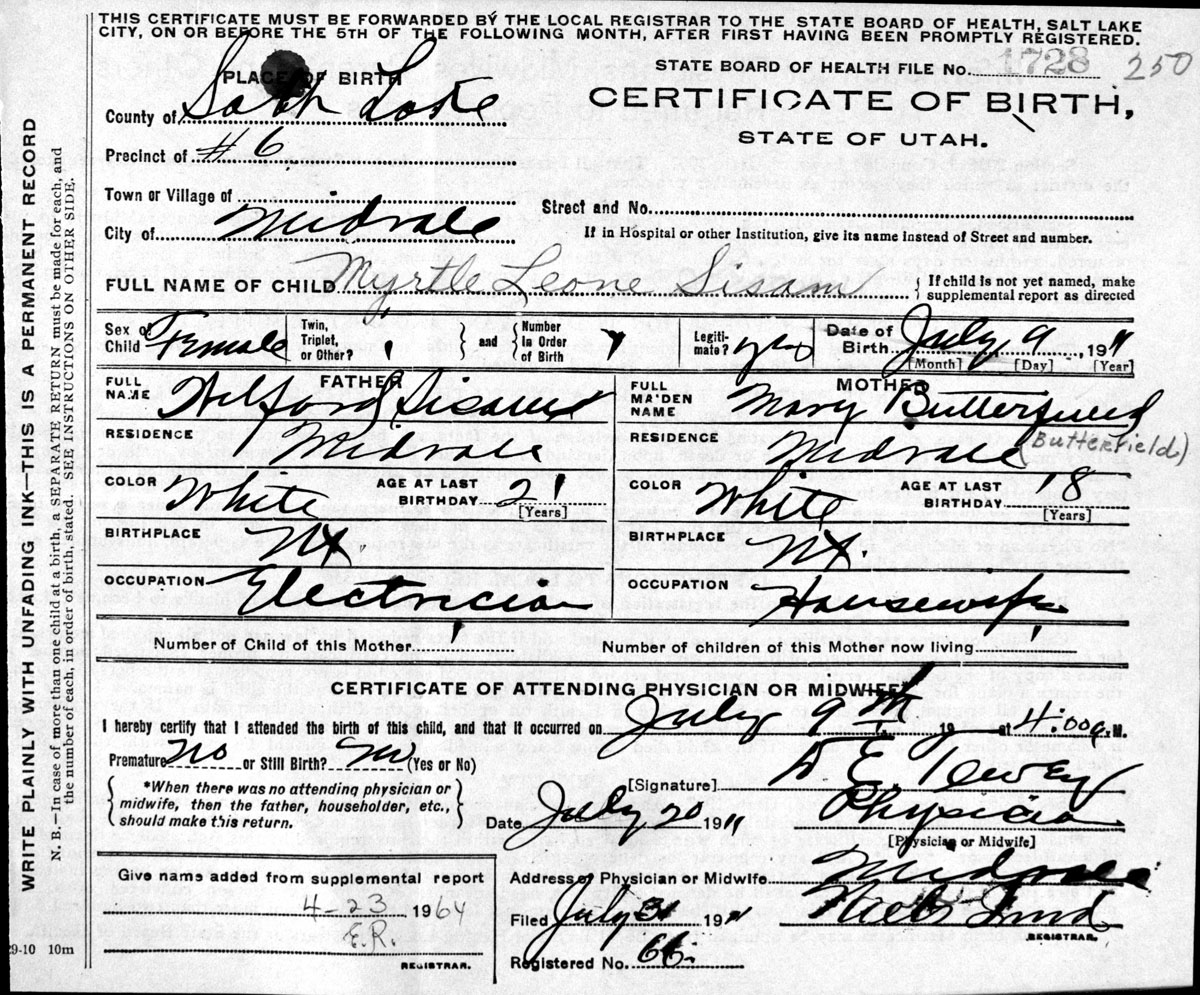 THIS CERTIFICATE MUST BE FORWARDED BY THE LOCAL REGISTRAR TO THE STATE BOARD OF HEALTH, SALT LAKE
CITY, ON OR BEFORE THE 5TH OF THE FOLLOWING MONTH, AFTER FIRST HAVING BEEN PROMPTLY REGISTERED.
STATE BOARD OF HEALTH FILE No. 1728 250
PLACE OF BIRTH
CERTIFICATE OF BIRTH,
STATE OF UTAH.
County of Salt Lake
Precinct of #6
Town or Village of
Street and No.
City of Midvale
If in Hospital or other Institution, give its name instead of Street and number.
FULL NAME OF CHILD Myrtle Leone Sisam { If child is not yet named, make
supplemental report as directed
Sex of Child Female
Twin, Triplet, or Other?
and
Number In Order of Birth
Legiti-mate? yes
Date of Birth July 9, 1911
[Month] [Day] [Year]
FATHER
FULL NAME Wilford Sisam
RESIDENCE Midvale
COLOR White AGE AT LAST BIRTHDAY 21
[Years]
BIRTHPLACE
OCCUPATION Electrician
MOTHER
FULL MAIDEN NAME Mary Butterfield
(Butterfield)
RESIDENCE Midvale
COLOR White AGE AT LAST BIRTHDAY 18
[Years]
BIRTHPLACE
OCCUPATION Housewife
Number of Child of this Mother 1
Number of children of this Mother now living 1
CERTIFICATE OF ATTENDING PHYSICIAN OR MIDWIFE*
I hereby certify that I attended the birth of this child, and that it occurred on July 9th, 19 at 4:00 a.M.
Premature No or Still Birth? No (Yes or No)
{ *When there was no attending physician or
midwife, then the father, householder, etc.,
should make this return. }
[Signature] Dewey
Date July 20 1911 Physician
[Physician or Midwife]
Address of Physician or Midwife Midvale
Filed July 31 1911
REGISTRAR.
Registered No. 66.
Give name added from supplemental report
4-23 1964
E.R.
REGISTRAR.
29-10 10m
WRITE PLAINLY WITH UNFADING INK—THIS IS A PERMANENT RECORD
N. B.—In case of more than one child at a birth, a SEPARATE RETURN must be made for each, and
the number of each, in order of birth, stated. SEE INSTRUCTIONS ON OTHER SIDE.